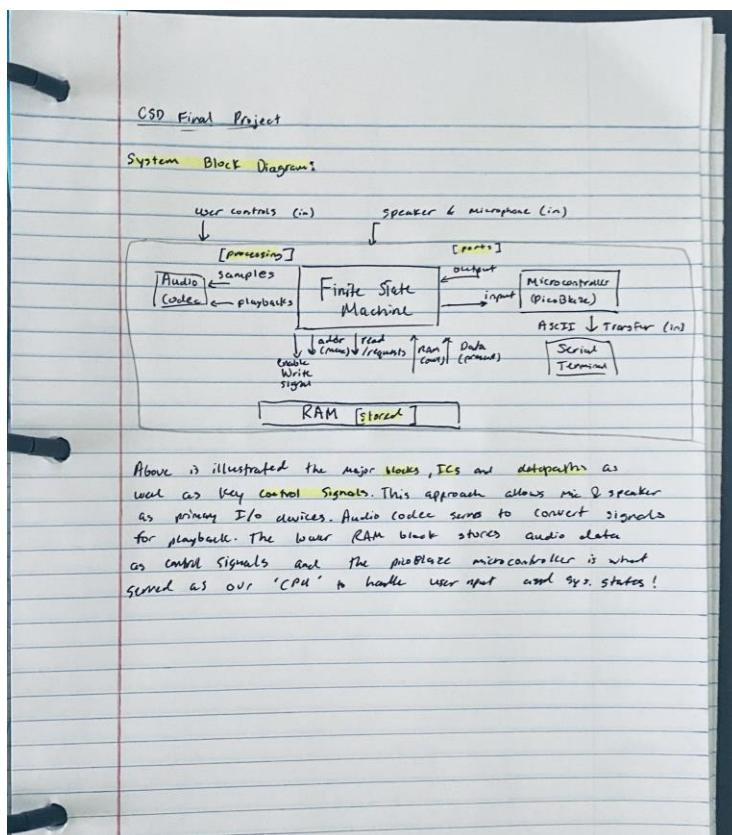 CSD Final Project
System Block Diagram:
user controls (in)
speaker & microphone (in)
[processing]
[ports]
Audio Codec
samples
playbacks
Finite State
Machine
output
input
Microcontroller
(PicoBlaze)
ASCII Transfer (in)
Serial
Terminal
Enable
Write
signal
addr
(mem)
read
/requests
RAM
(out)
Data
(present)
RAM [stored]
Above is illustrated the major blocks, ICs and datapaths as
well as key control signals. This approach allows mic & speaker
as primary I/o devices. Audio codec serves to convert signals
for playback. The lower RAM block stores audio data
as control signals and the picoBlaze microcontroller is what
served as our 'CPU' to handle user input and sys. states!